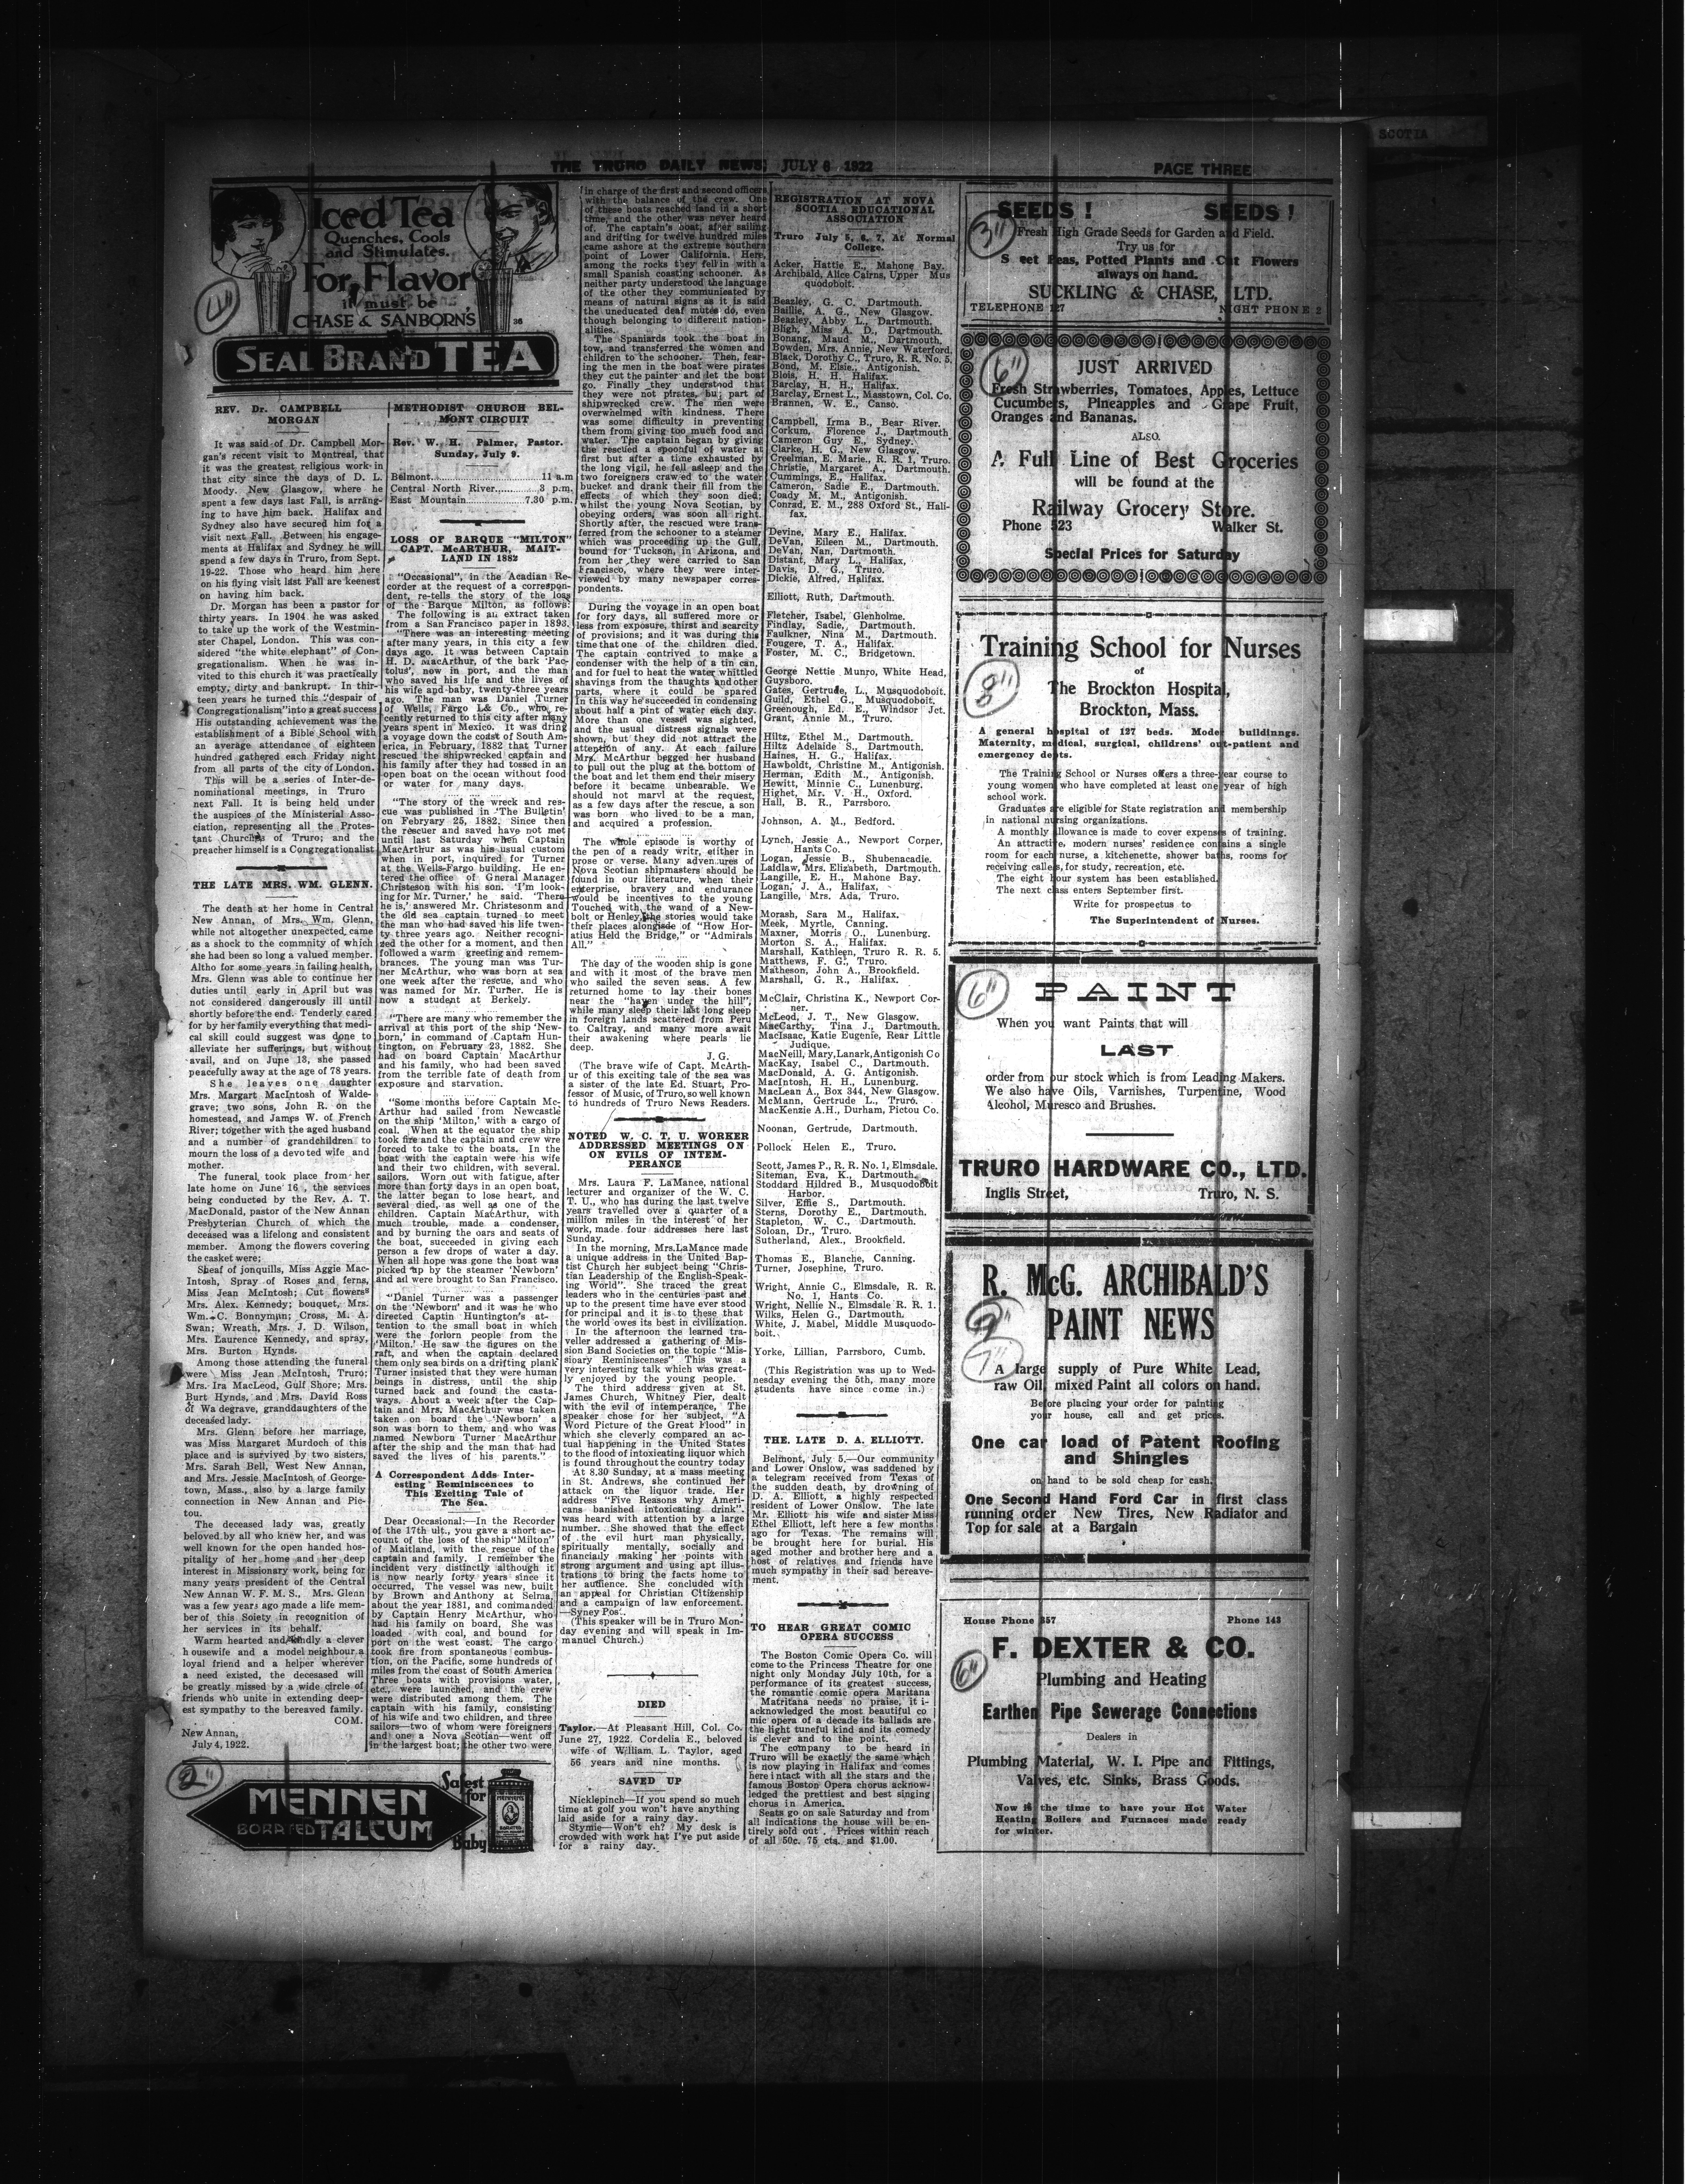 SCOTIA
THE TRURO DAILY NEWS, JULY 6 1922
PAGE THREE
Iced Tea
Quenches, Cools
and Stimulates.
For Flavor
it must be
CHASE & SANBORN'S
SEAL BRAND TEA
REV. Dr. CAMPBELL
MORGAN
It was said of Dr. Campbell Mor-
gan's recent visit to Montreal, that
it was the greatest religious work in
that city since the days of D. L.
Moody. New Glasgow, where he
spent a few days last Fall, is arrang-
ing to have him back. Halifax and
Sydney also have secured him for a
visit next Fall. Between his engage-
ments at Halifax and Sydney he will
spend a few days in Truro, from Sept.
19-22. Those who heard him here
on his flying visit last Fall are keenest
on having him back.
Dr. Morgan has been a pastor for
thirty years. In 1904 he was asked
to take up the work of the Westmin-
ster Chapel, London. This was con-
sidered "the white elephant" of Con-
gregationalism. When he was in-
vited to this church it was practically
empty, dirty and bankrupt. In thir-
teen years he turned this "despair of
Congregationalism" into a great success
His outstanding achievement was the
establishment of a Bible School with
an average attendance of eighteen
hundred gathered each Friday night
from all parts of the city of London.
This will be a series of Inter-de-
nominational meetings, in Truro
next Fall. It is being held under
the auspices of the Ministerial Asso-
ciation, representing all the Protes-
tant Churches of Truro; and the
preacher himself is a Congregationalist
THE LATE MRS. WM. GLENN.
The death at her home in Central
New Annan, of Mrs. Wm. Glenn,
while not altogether unexpected, came
as a shock to the commnity of which
she had been so long a valued member.
Altho for some years in failing health,
Mrs. Glenn was able to continue her
duties until early in April but was
not considered dangerously ill until
shortly before the end. Tenderly cared
for by her family everything that medi-
cal skill could suggest was done to
alleviate her sufferings, but without
avail, and on June 13, she passed
peacefully away at the age of 78 years.
She leaves one daughter
Mrs. Margart MacIntosh of Walde-
grave; two sons, John R. on the
homestead, and James W. of French
River; together with the aged husband
and a number of grandchildren to
mourn the loss of a devoted wife and
mother.
The funeral took place from her
late home on June 16, the services
being conducted by the Rev. A. T.
MacDonald, pastor of the New Annan
Presbyterian Church of which the
deceased was a lifelong and consistent
member. Among the flowers covering
the casket were;
Sheaf of jonquills, Miss Aggie Mac-
Intosh, Spray of Roses and ferns,
Miss Jean McIntosh; Cut flowers
Mrs. Alex. Kennedy; bouquet, Mrs.
Wm. C. Bonnyman; Cross, M. A.
Swan; Wreath, Mrs. J. D. Wilson,
Mrs. Laurence Kennedy, and spray,
Mrs. Burton Hynds.
Among those attending the funeral
were Miss Jean McIntosh, Truro;
Mrs. Ira MacLeod, Gulf Shore; Mrs.
Burt Hynds, and Mrs. David Ross
of Wa degrave, granddaughters of the
deceased lady.
Mrs. Glenn before her marriage,
was Miss Margaret Murdoch of this
place and is survived by two sisters,
Mrs. Sarah Bell, West New Annan,
and Mrs. Jessie MacIntosh of George-
town, Mass., also by a large family
connection in New Annan and Pic-
tou.
The deceased lady was, greatly
beloved by all who knew her, and was
well known for the open handed hos-
pitality of her home and her deep
interest in Missionary work, being for
many years president of the Central
New Annan W. F. M. S., Mrs. Glenn
was a few years ago made a life mem-
ber of this Soiety in recognition of
her services in its behalf.
Warm hearted and kindly a clever
housewife and a model neighbour a
loyal friend and a helper wherever
a need existed, the decesased will
be greatly missed by a wide circle of
friends who unite in extending deep-
est sympathy to the bereaved family.
COM.
New Annan,
July 4, 1922.
MENNEN
BORATED TALCUM
Safest
for
Baby
METHODIST CHURCH BEL-
MONT CIRCUIT
Rev. W. H. Palmer, Pastor.
Sunday, July 9.
Belmont 11 a.m
Central North River 3 p.m.
East Mountain 7.30 p.m.
LOSS OF BARQUE "MILTON"
CAPT. McARTHUR, MAIT-
LAND IN 1882
"Occasional", in the Acadian Re-
corder at the request of a correspon-
dent, re-tells the story of the loss
of the Barque Milton, as follows:
The following is an extract taken
from a San Francisco paper in 1893.
"There was an interesting meeting
after many years, in this city a few
days ago. It was between Captain
H. D. MacArthur, of the bark 'Pac-
tolus', now in port, and the man
who saved his life and the lives of
his wife and baby, twenty-three years
ago. The man was Daniel Turner
of Wells, Fargo L& Co., who re-
cently returned to this city after many
years spent in Mexico. It was dring
a voyage down the coast of South Am-
erica, in February, 1882 that Turner
rescued the shipwrecked captain and
his family after they had tossed in an
open boat on the ocean without food
or water for many days.
"The story of the wreck and res-
cue was published in 'The Bulletin'
on February 25, 1882. Since then
the rescuer and saved have not met
until last Saturday when Captain
MacArthur as was his usual custom
when in port, inquired for Turner
at the Wells-Fargo building. He en-
tered the office of General Manager
Christeson with his son. 'I'm look-
ing for Mr. Turner,' he said. 'There
he is,' answered Mr. Christesonm and
the old sea captain turned to meet
the man who had saved his life twen-
ty three years ago. Neither recogni-
zed the other for a moment, and then
followed a warm greeting and remem-
brances. The young man was Tur-
ner McArthur, who was born at sea
one week after the rescue, and who
was named for Mr. Turner. He is
now a student at Berkely.
"There are many who remember the
arrival at this port of the ship 'New-
born,' in command of Captain Hun-
tington, on February 23, 1882. She
had on board Captain MacArthur
and his family, who had been saved
from the terrible fate of death from
exposure and starvation.
"Some months before Captain Mc-
Arthur had sailed from Newcastle
on the ship 'Milton,' with a cargo of
coal. When at the equator the ship
took fire and the captain and crew wre
forced to take to the boats. In the
boat with the captain were his wife
and their two children, with several
sailors. Worn out with fatigue, after
more than forty days in an open boat,
the latter began to lose heart, and
several died, as well as one of the
children. Captain MacArthur, with
much trouble, made a condenser,
and by burning the oars and seats of
the boat, succeeded in giving each
person a few drops of water a day.
When all hope was gone the boat was
picked up by the steamer 'Newborn'
and ad were brought to San Francisco.
"Daniel Turner was a passenger
on the 'Newborn' and it was he who
directed Captin Huntington's at-
tention to the small boat in which
were the forlorn people from the
'Milton.' He saw the figures on the
raft, and when the captain declared
them only sea birds on a drifting plank
Turner insisted that they were human
beings in distress, until the ship
turned back and found the casta-
ways. About a week after the Cap-
tain and Mrs. MacArthur was taken
taken on board the 'Newborn' a
son was born to them, and who was
named Newborn Turner MacArthur
after the ship and the man that had
saved the lives of his parents."
A Correspondent Adds Inter-
esting Reminiscences to
This Exciting Tale of
The Sea.
Dear Occasional:—In the Recorder
of the 17th ult., you gave a short ac-
count of the loss of the ship "Milton"
of Maitland, with the rescue of the
captain and family. I remember the
incident very distinctly although it
is now nearly forty years since it
occurred, The vessel was new, built
by Brown and Anthony at Selma,
about the year 1881, and commanded
by Captain Henry McArthur, who
had his family on board, She was
loaded with coal, and bound for
port on the west coast. The cargo
took fire from spontaneous combus-
tion, on the Pacific, some hundreds of
miles from the coast of South America
Three boats with provisions water,
etc., were launched, and the crew
were distributed among them. The
captain with his family, consisting
of his wife and two children, and three
sailors—two of whom were foreigners
and one a Nova Scotian—went off
in the largest boat; the other two were
in charge of the first and second officers
with the balance of the crew. One
of these boats reached land in a short
time, and the other was never heard
of. The captain's boat, after sailing
and drifting for twelve hundred miles
came ashore at the extreme southern
point of Lower California. Here,
among the rocks they fell in with a
small Spanish coasting schooner. As
neither party understood the language
of the other they communicated by
means of natural signs as it is said
the uneducated deaf mutes do, even
though belonging to different nation-
alities.
The Spaniards took the boat in
tow, and transferred the women and
children to the schooner. Then, fear-
ing the men in the boat were pirates
they cut the painter and let the boat
go. Finally they understood that
they were not pirates, bu; part of
shipwrecked crew. The men were
overwhelmed with kindness. There
was some difficulty in preventing
them from giving too much food and
water. The captain began by giving
the rescued a spoonful of water at
first but after a time exhausted by
the long vigil, he fell asleep and the
two foreigners crawed to the water
bucket and drank their fill from the
effects of which they soon died;
whilst the young Nova Scotian, by
obeying orders, was soon all right.
Shortly after, the rescued were trans-
ferred from the schooner to a steamer
which was proceeding up the Gulf,
bound for Tuckson, in Arizona, and
from her they were carried to San
Francisco, where they were inter-
viewed by many newspaper corres-
pondents.
During the voyage in an open boat
for fory days, all suffered more or
less from exposure, thirst and scarcity
of provisions; and it was during this
time that one of the children died.
The captain contrived to make a
condenser with the help of a tin can,
and for fuel to heat the water whittled
shavings from the thaughts and other
parts, where it could be spared
In this way he succeeded in condensing
about half a pint of water each day.
More than one vessel was sighted,
and the usual distress signals were
shown, but they did not attract the
attention of any. At each failure
Mrs. McArthur begged her husband
to pull out the plug at the bottom of
the boat and let them end their misery
before it became unbearable. We
should not marvl at the request,
as a few days after the rescue, a son
was born who lived to be a man,
and acquired a profession.
The whole episode is worthy of
the pen of a ready writr, either in
prose or verse. Many adventures of
Nova Scotian shipmasters should be
found in our literature, when their
enterprise, bravery and endurance
would be incentives to the young
Touched with the wand of a New-
bolt or Henley, the stories would take
their places alongside of "How Hor-
atius Held the Bridge," or "Admirals
All."
The day of the wooden ship is gone
and with it most of the brave men
who sailed the seven seas. A few
returned home to lay their bones
near the "haven under the hill",
while many sleep their last long sleep
in foreign lands scattered from Peru
to Caltray, and many more await
their awakening where pearls lie
deep.
J. G.
(The brave wife of Capt. McArth-
ur of this exciting tale of the sea was
a sister of the late Ed. Stuart, Pro-
fessor of Music, of Truro, so well known
to hundreds of Truro News Readers.
NOTED W. C. T. U. WORKER
ADDRESSED MEETINGS ON
ON EVILS OF INTEM-
PERANCE
Mrs. Laura F. LaMance, national
lecturer and organizer of the W. C.
T. U., who has during the last twelve
years travelled over a quarter of a
million miles in the interest of her
work, made four addresses here last
Sunday.
In the morning, Mrs. LaMance made
a unique address in the United Bap-
tist Church her subject being "Chris-
tian Leadership of the English-Speak-
ing World". She traced the great
leaders who in the centuries past and
up to the present time have ever stood
for principal and it is to these that
the world owes its best in civilization.
In the afternoon the learned tra-
veller addressed a gathering of Mis-
sion Band Societies on the topic "Mis-
sioary Reminiscenses" This was a
very interesting talk which was great-
ly enjoyed by the young people.
The third address given at St.
James Church, Whitney Pier, dealt
with the evil of intemperance, The
speaker chose for her subject, "A
Word Picture of the Great Flood" in
which she cleverly compared an ac-
tual happening in the United States
to the flood of intoxicating liquor which
is found throughout the country today
At 8.30 Sunday, at a mass meeting
in St. Andrews, she continued her
attack on the liquor trade. Her
address "Five Reasons why Ameri-
cans banished intoxicating drink"
was heard with attention by a large
number. She showed that the effect
of the evil hurt man physically,
spiritually mentally, socially and
financially making her points with
strong argument and using apt illus-
trations to bring the facts home to
her audience. She concluded with
an appeal for Christian Citizenship
and a campaign of law enforcement.
—Syney Pos'.
(This speaker will be in Truro Mon-
day evening and will speak in Im-
manuel Church.)
DIED
Taylor.—At Pleasant Hill, Col. Co.
June 27, 1922. Cordelia E., beloved
wife of William. L. Taylor, aged
56 years and nine months.
SAVED UP
Nicklepinch—If you spend so much
time at golf you won't have anything
laid aside for a rainy day.
Stymie—Won't eh? My desk is
crowded with work hat I've put aside
for a rainy day.
REGISTRATION AT NOVA
SCOTIA EDUCATIONAL
ASSOCIATION
Truro July 5, 6, 7, At Normal
College.
Acker, Hattie E., Mahone Bay.
Archibald, Alice Cairns, Upper Mus
quodobolt.
Beazley, G. C, Dartmouth.
Baillie, A. G., New Glasgow.
Beazley, Abby L., Dartmouth.
Bligh, Miss A. D., Dartmouth.
Bonang, Maud M., Dartmouth.
Bowden, Mrs. Annie, New Waterford.
Black, Dorothy C., Truro, R. R. No. 5.
Bond, M. Elsie, Antigonish.
Blois, H. H. Halifax.
Barclay, H. H., Halifax.
Barclay, Ernest L., Masstown, Col. Co.
Brannen, W. E., Canso.
Campbell, Irma B., Bear River.
Corkum, Florence J., Dartmouth
Cameron Guy E., Sydney.
Clarke, H. G., New Glasgow.
Creelman, E. Marie., R. R. 1, Truro.
Christie, Margaret A., Dartmouth.
Cummings, E., Halifax.
Cameron, Sadie E., Dartmouth.
Coady M. M., Antigonish.
Conrad, E. M., 288 Oxford St., Hali-
fax.
Devine, Mary E., Halifax.
DeVan, Eileen M., Dartmouth.
DeVan, Nan, Dartmouth.
Distant, Mary L., Halifax,
Davis, D. G., Truro.
Dickie, Alfred, Halifax.
Elliott, Ruth, Dartmouth.
Fletcher, Isabel, Glenholme.
Findlay, Sadie, Dartmouth.
Faulkner, Nina M., Dartmouth.
Fougere, T. A., Halifax.
Foster, M. C., Bridgetown.
George Nettie Munro, White Head,
Guysboro.
Gates, Gertrude, L., Musquodoboit.
Guild, Ethel G., Musquodoboit.
Greenough, Ed. E., Windsor Jct.
Grant, Annie M., Truro.
Hiltz, Ethel M., Dartmouth.
Hiltz Adelaide S., Dartmouth.
Haines, H. G., Halifax.
Hawboldt, Christine M., Antigonish.
Herman, Edith M., Antigonish.
Hewitt, Minnie C., Lunenburg.
Highet, Mr. V. H., Oxford.
Hall, B. R., Parrsboro.
Johnson, A. M., Bedford.
Lynch, Jessie A., Newport Corper,
Hants Co.
Logan, Jessie B., Shubenacadie.
Laidlaw, Mrs. Elizabeth, Dartmouth.
Langille, E. H. Mahone Bay.
Logan, J. A., Halifax,
Langille, Mrs. Ada, Truro.
Morash, Sara M., Halifax.
Meek, Myrtle, Canning.
Maxner, Morris O., Lunenburg.
Morton S. A., Halifax.
Marshall, Kathleen, Truro R. R. 5.
Matthews, F. G., Truro.
Matheson, John A., Brookfield.
Marshall, G. R., Halifax.
McClair, Christina K., Newport Cor-
ner.
McLeod, J. T., New Glasgow.
MacCarthy, Tina J., Dartmouth.
MacIsaac, Katie Eugenie, Rear Little
Judique.
MacNeill, Mary, Lanark, Antigonish Co
MacKay, Isabel C., Dartmouth.
MacDonald, A. G. Antigonish.
MacIntosh, H. H., Lunenburg.
MacLean A., Box 344, New Glasgow.
McMann, Gertrude L., Truro.
MacKenzie A.H., Durham, Pictou Co.
Noonan, Gertrude, Dartmouth.
Pollock Helen E., Truro.
Scott, James P., R. R. No. 1, Elmsdale.
Siteman, Eva, K., Dartmouth.
Stoddard Hildred B., Musquodoboit
Harbor.
Silver, Effie S., Dartmouth.
Sterns, Dorothy E., Dartmouth.
Stapleton, W. C., Dartmouth.
Soloan, Dr., Truro.
Sutherland, Alex., Brookfield.
Thomas E., Blanche, Canning.
Turner, Josephine, Truro.
Wright, Annie C., Elmsdale, R. R.
No. 1, Hants Co.
Wright, Nellie N., Elmsdale R. R. 1.
Wilks, Helen G., Dartmouth.
White, J. Mabel, Middle Musquodo-
boit.
Yorke, Lillian, Parrsboro, Cumb.
(This Registration was up to Wed-
nesday evening the 5th, many more
students have since come in.)
THE. LATE D. A. ELLIOTT.
Belmont, July 5.—Our community
and Lower Onslow, was saddened by
a telegram received from Texas of
the sudden death, by drowning of
D. A. Elliott, a highly respected
resident of Lower Onslow. The late
Mr. Elliott his wife and sister Miss
Ethel Elliott, left here a few months
ago for Texas. The remains will
be brought here for burial. His
aged mother and brother here and a
host of relatives and friends have
much sympathy in their sad bereave-
ment.
TO HEAR GREAT COMIC
OPERA SUCCESS
The Boston Comic Opera Co. will
come to the Princess Theatre for one
night only Monday July 10th, for a
performance of its greatest success,
the romantic comic opera Maritana
Matritana needs no praise, it i-
acknowledged the most beautiful co
mic opera of a decade its ballads are
the light tuneful kind and its comedy
is clever and to the point.
The company to be heard in
Truro will be exactly the same which
is now playing in Halifax and comes
here intact with all the stars and the
famous Boston Opera chorus acknow-
ledged the prettiest and best singing
chorus in America.
Seats go on sale Saturday and from
all indications the house will be en-
tirely sold out. Prices within reach
of all 50c. 75 cts. and $1.00.
SEEDS! SEEDS!
3"
Fresh High Grade Seeds for Garden and Field.
Try us for
Sweet Peas, Potted Plants and Cut Flowers
always on hand.
SUCKLING & CHASE, LTD.
TELEPHONE 127 NIGHT PHONE 2
6"
JUST ARRIVED
Fresh Strawberries, Tomatoes, Apples, Lettuce
Cucumbers, Pineapples and Grape Fruit,
Oranges and Bananas.
ALSO.
A Full Line of Best Groceries
will be found at the
Railway Grocery Store.
Phone 523 Walker St.
Special Prices for Saturday
Training School for Nurses
8"
of
The Brockton Hospital,
Brockton, Mass.
A general hospital of 127 beds. Moder buildinngs.
Maternity, medical, surgical, childrens' out-patient and
emergency depts.
The Training School or Nurses offers a three-year course to
young women who have completed at least one year of high
school work.
Graduates are eligible for State registration and membership
in national nursing organizations.
A monthly allowance is made to cover expenses of training.
An attractive, modern nurses' residence contains a single
room for each nurse, a kitchenette, shower baths, rooms for
receiving callers, for study, recreation, etc.
The eight hour system has been established.
The next class enters September first.
Write for prospectus to
The Superintendent of Nurses.
6"
PAINT
When you want Paints that will
LAST
order from our stock which is from Leading Makers.
We also have Oils, Varnishes, Turpentine, Wood
Alcohol, Muresco and Brushes.
TRURO HARDWARE CO., LTD.
Inglis Street, Truro, N. S.
R. McG. ARCHIBALD'S
PAINT NEWS
7"
A large supply of Pure White Lead,
raw Oil, mixed Paint all colors on hand.
Before placing your order for painting
your house, call and get prices.
One car load of Patent Roofing
and Shingles
on hand to be sold cheap for cash.
One Second Hand Ford Car in first class
running order New Tires, New Radiator and
Top for sale at a Bargain
House Phone 357 Phone 143
6"
F. DEXTER & CO.
Plumbing and Heating
Earthen Pipe Sewerage Connections
Dealers in
Plumbing Material, W. I. Pipe and Fittings,
Valves, etc. Sinks, Brass Goods.
Now is the time to have your Hot Water
Heating Boilers and Furnaces made ready
for winter.